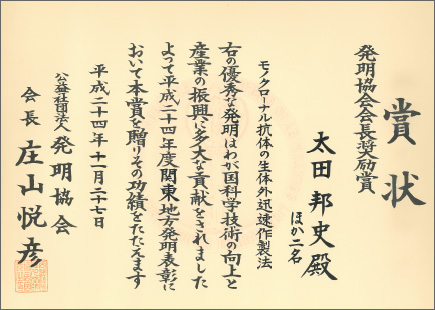 賞状
発明協会会長奨励賞
太田邦史殿
ほか二名
モノクローナル抗体の生体外迅速作製法
右の優秀な発明はわが国科学技術の向上と
産業の振興に多大な貢献をされました
よって平成二十四年度関東地方発明表彰に
おいて本賞を贈りその功績をたたえます
平成二十四年十一月二十七日
公益社団法人 発明協会
会長 庄山悦彦